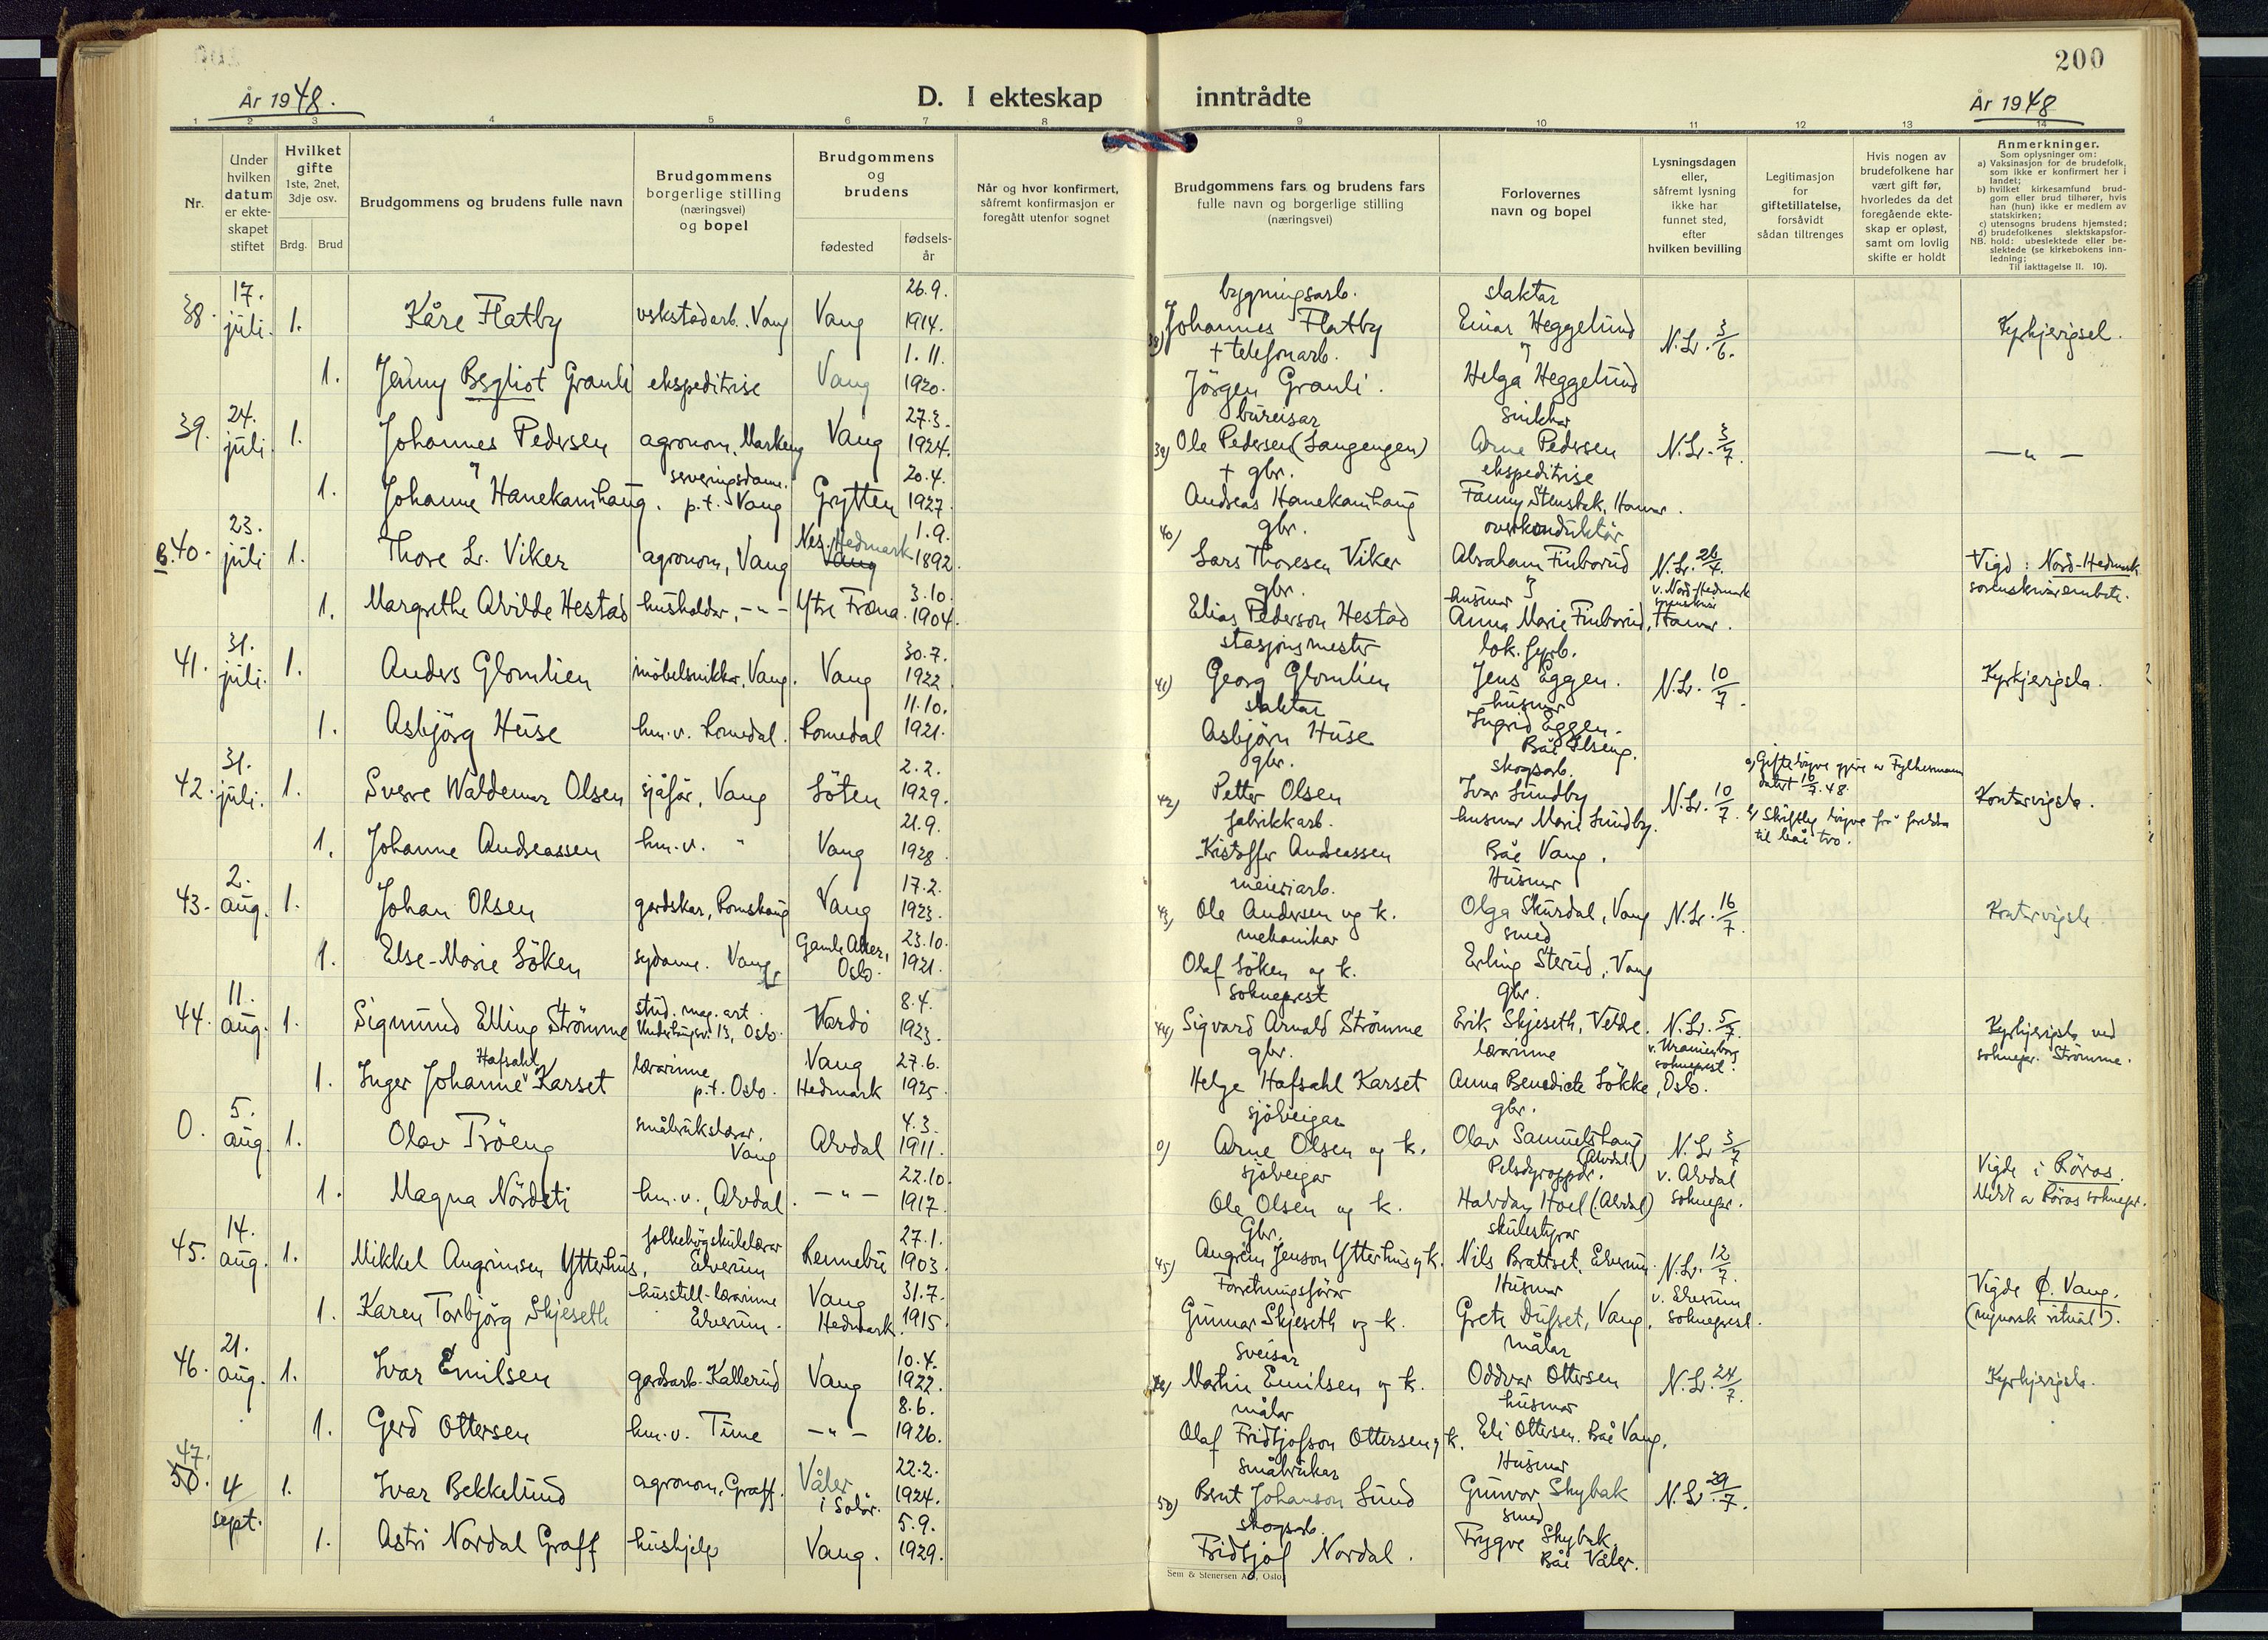 200
År 1948.
D. I ekteskap
inntrådte
År 1948
1 2 3 4 5 6 7 8 9 10 11 12 13 14
Nr.
Under hvilken datum er ekteskapet stiftet
Hvilket gifte
1ste, 2net, 3dje osv.
Brdg. Brud
Brudgommens og brudens fulle navn
Brudgommens borgerlige stilling (næringsvei) og bopel
Brudgommens og brudens
fødested
fødsels-år
Når og hvor konfirmert, såfremt konfirmasjon er foregått utenfor sognet
Brudgommens fars og brudens fars fulle navn og borgerlige stilling (næringsvei)
Forlovernes navn og bopel
Lysningsdagen eller, såfremt lysning ikke har funnet sted, efter hvilken bevilling
Legitimasjon for giftetillatelse, forsåvidt sådan tiltrenges
Hvis nogen av brudefolkene har vært gift før, hvorledes da det foregående ekteskap er opløst, samt om lovlig skifte er holdt
Anmerkninger.
Som oplysninger om:
a) Vaksinasjon for de brudefolk, som ikke er konfirmert her i landet;
b) hvilket kirkesamfund brudgom eller brud tilhører, hvis han (hun) ikke er medlem av statskirken;
c) utensogns brudens hjemsted;
d) brudefolkenes slektskapsforhold: ubeslektede eller beslektede (se kirkebokens innledning;
NB. Til iakttagelse II. 10).
38. 17. juli. 1. Kåre Flatby verkstadarb. Vang Vang 26.9. 1914. bygningsarb. Johannes Flatby slaktar Einar Heggelund N.Lr. 3/6. Kyrkjevigsel.
1. Jenny Bergliot Granli ekspeditrise Vang 1.11. 1920. + telefonarb. Jörgen Granli. Helga Heggelund
39. 24. juli 1. Johannes Pedersen agronom, Markeng Vang 27.3. 1924. 39) bureisar Ole Pedersen (Langengen) snikkar Arne Pedersen N.Lr. 3/7. — " —
1. Johanne Hanekamhaug. serveringsdame. p.t. Vang Grytten 20.4. 1927. + gbr. Andreas Hanekamhaug ekspeditrise Fanny Stensbak, Hamar.
B.40. 23. juli 1. Thore Lr. Viker agronom, Vang Nes, Hedmark Vang 1.9. 1892. 40) gbr. Lars Thoresen Viker overkonduktör Abraham Finborud N.Lr. 26/4. v. Nord-Hedmark sorenskrivar Vigd: Nord-Hedmark sorenskrivarembete.
1. Margrethe Alvilde Hestad husholdar, — " — Ytre Fræna. 3.10. 1904. gbr. Elias Pederson Hestad husmor Anna Marie Finborud, Hamar.
41. 31. juli. 1. Anders Glomlien möbelsnikkar, Vang. Vang 30.7. 1922. 41) stasjonsmester Georg Glomlien lok.fyrb. Jens Eggen. N.Lr. 10/7. Kyrkjevigsla.
1. Asbjörg Huse hm.v. Romedal. Romedal 11.10. 1921. slaktar Asbjörn Huse husmor Ingrid Eggen. Båe Ilseng.
42. 31. juli. 1. Sverre Waldemar Olsen sjåfør, Vang Löten 2.2. 1929. 42) gbr. Petter Olsen skogsarb. Ivar Lundby N.Lr. 10/7. a) Gifteløyve gjeve av Fylkesmann datert 16/7.48. Kontorvigsla.
1. Johanne Andreassen hm.v. " Vang 21.9. 1928. fabrikkarb. Kristoffer Andreassen husmor Marie Lundby. Båe Vang. b) Skriftleg løyve frå foreldra til båe two.
43. 2. aug. 1. Johan Olsen gardskar, Romshaug Vang 17.2. 1923. 43) meieriarb. Ole Andersen og k. Husmor Olga Skurdal, Vang N.Lr. 16/7. Kontorvigsla.
1. Else-Marie Löken sydame. Vang Gamle Aker, Oslo. 23.10. 1921. mekanikar Olaf Löken og k. smed Erling Sterud, Vang
44. 11. aug. 1. Sigmund Elling Strömme stud. mag. art. Oslo. Vardö 8.4. 1923. 44) sokneprest Sigvard Arnald Strömme gbr. Erik Skjeseth, Veldre. N.Lr. 5/7. v. Uranienborg sokneprest. Kyrkjevigsla ved soknepr. Strömme.
1. Inger Johanne Hafsahl Karset lærarinne p.t. Oslo. Vang Hedmark 27.6. 1925. gbr. Helge Hafsahl Karset lærarinne Anna Benedicte Lökke, Oslo.
0. 5. aug. 1. Olav Tröeng småbrukslærar, Vang Alvdal 4.3. 1911. 0) sjölveigar Arne Olsen og k. gbr. Olav Samuelshaug (Alvdal) N.Lr. 3/7 v. Alvdal soknepr. Vigde i Röros. Meld. av Röros soknepr.
1. Magna Nördsti hm.v., Alvdal. — " — 22.10 1917. sjölveigar Ole Olsen og k. Pelsdyroppdr. Halvdan Hoel (Alvdal)
45. 14. aug. 1. Mikkel Angrimsen Ytterhus, folkehögskulelærar Elverum Rennebu 27.1. 1903. 45) Gbr. Angrim Jenson Ytterhus og k. skulestyrar Nils Brattset, Elverum. N.Lr. 12/7. v. Elverum sokneprest. Vigde Ø. Vang. (nynorsk ritual).
1. Karen Torbjörg Skjeseth husstell-lærarinne Elverum. Vang Hedmark. 31.7. 1915. Forretningsförar Gunnar Skjeseth og k. Husmor Grete Dufset, Vang.
46. 21. aug. 1. Ivar Emilsen gardsarb. Kallerud Vang 10.4. 1922. 46) sveisar Martin Emilsen og k. målar Oddvar Ottersen N.Lr. 24/7. Kyrkjevigsla.
1. Gerd Ottersen hm.v. Tune — " — 8.6. 1926. målar Olaf Fridtjofson Ottersen og k. husmor Eli Ottersen. Båe Vang.
47. 50. 4 sept. 1. Ivar Bekkelund agronom, Graff. Våler i Solör. 22.2. 1924. 50) småbrukar Bernt Johanson Lund Husmor Gunvor Skybak N.Lr. 29/7.
1. Astri Nordal Graff hushjelp Vang. 5.9. 1929. skogsarb. Fridtjof Nordal. smed Trygve Skybak. Båe Våler.
Sem & Stenersen A/S, Oslo.